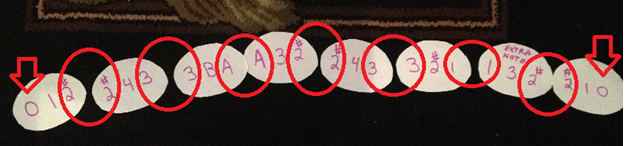 0 1 #2
#2 4 3
3 B A
A 3 #2
#2 4 3
3 #2 1
EXTRA
NOTE
1 3 2#
#2 1 0